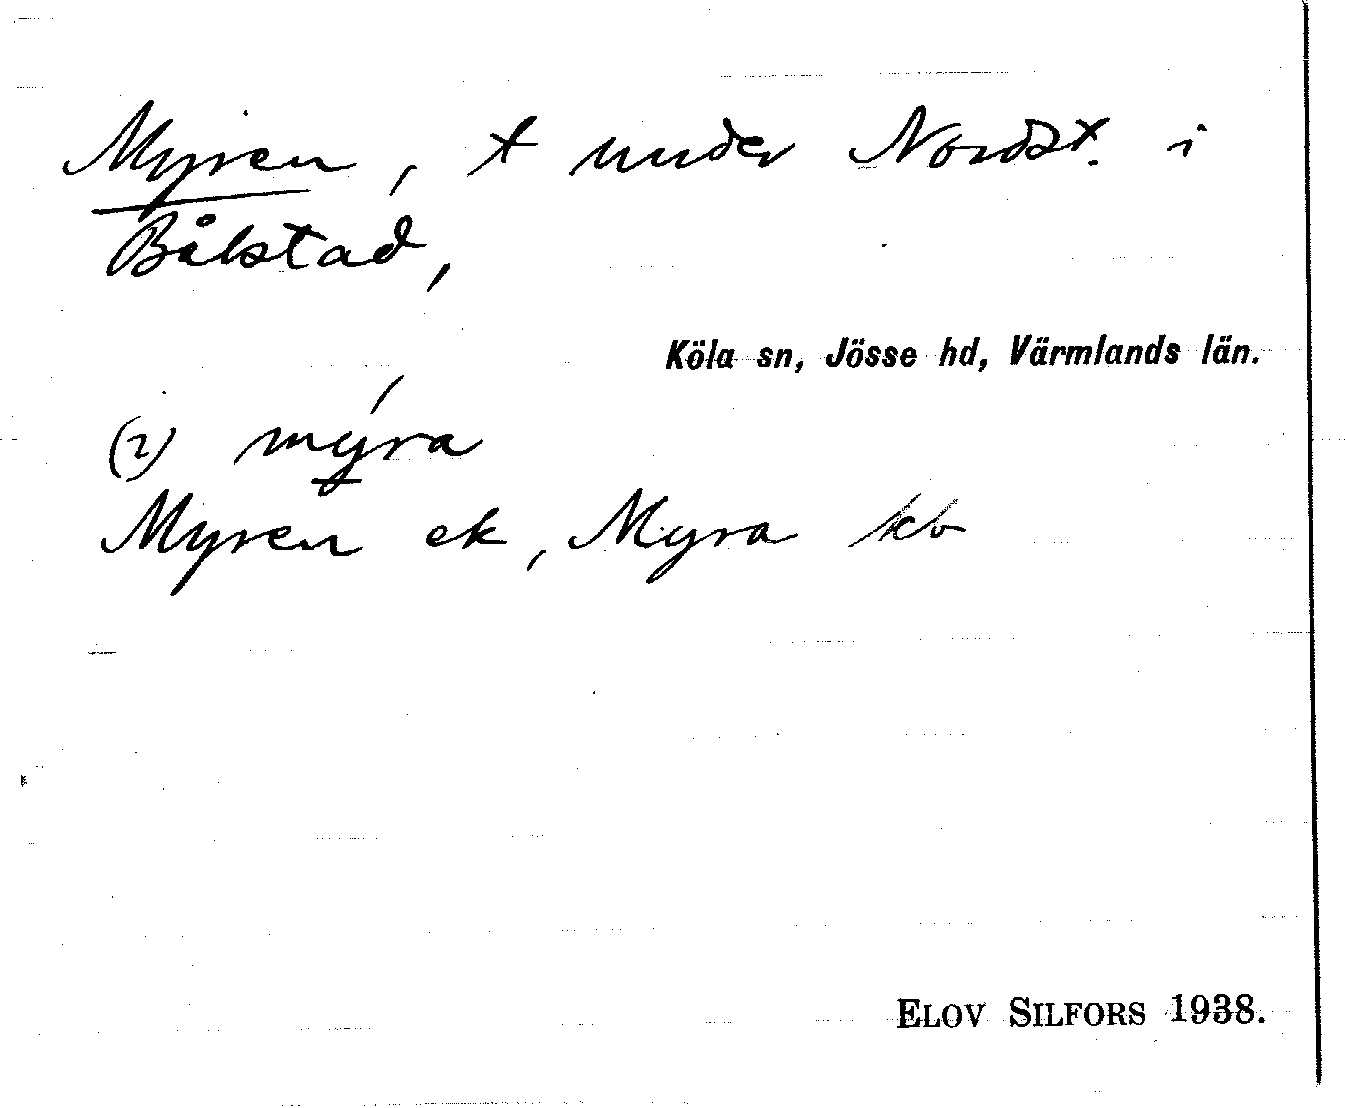 Myren, t under Nordst. i
Bålstad,
Köla sn, Jösse hd, Värmlands län.
(2) mýra
Myren ek, Myra kb
ELOV SILFORS 1938.